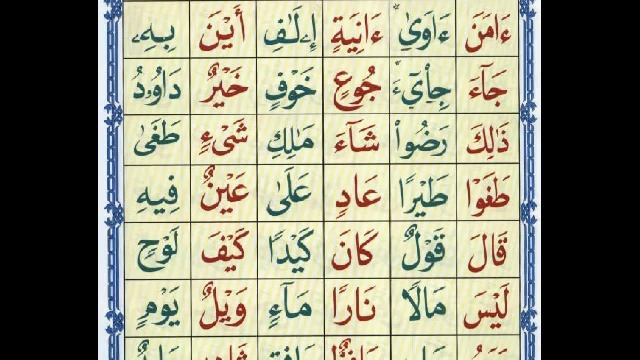 ءَامَنَ ءَاوَىٰ ءَانِيَةٍ إِۦلَٰفِ أَيْنَ بِهِۦ
جَآءَ جِاْىٓءَ جُوعٍ خَوْفٍ خَيْرٌ دَاوُۥدُ
ذَٰلِكَ رَضُواْ شَآءَ مَٰلِكِ شَىْءٍ طَغَىٰ
طَغَوْا طَيْرًا عَادٍ عَلَىٰ عَيْنٌ فِيهِ
قَالَ قَوْلٌ كَانَ كَيْدًا كَيْفَ لَوْحٍ
لَيْسَ مَالًا نَارًا مَآءٍ وَيْلٌ يَوْمٍ